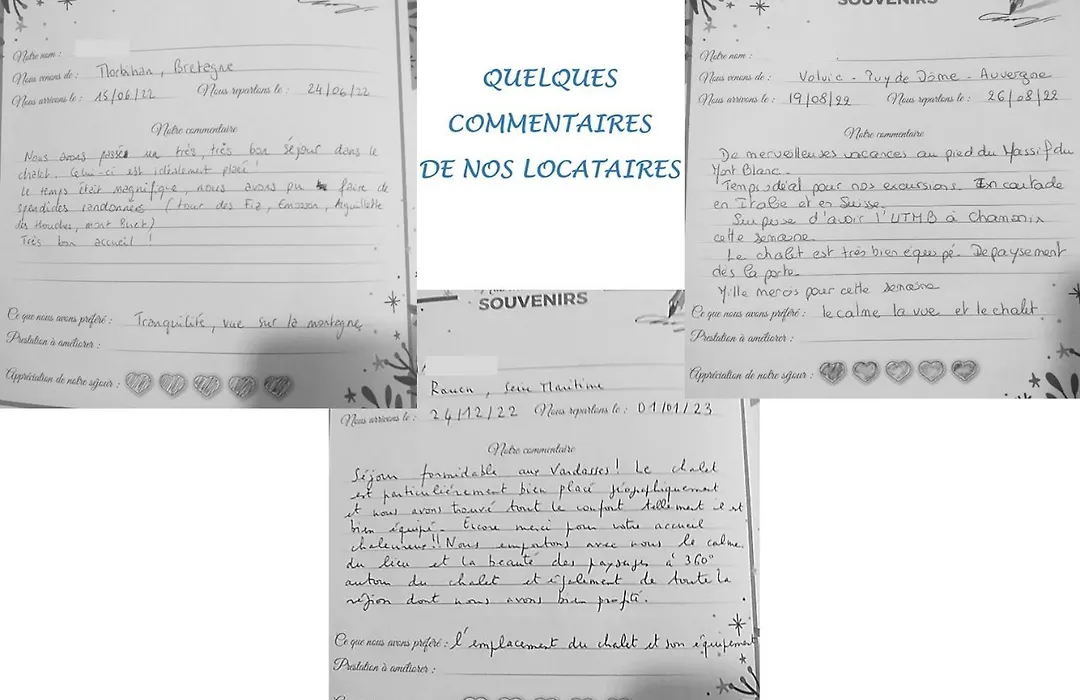 Notre nom :
Nous venons de : Morbihan, Bretagne
Nous arrivons le : 15/06/22 Nous repartons le : 24/06/22
Notre commentaire
Nous avons passés un très, très bon séjour dans le
chalet. Celui-ci est idéalement placé !
Le temps était magnifique, nous avons pu faire de
spendides randonnées (tour des Fiz, Emosson, Aiguillette
des Houches, mont Buet)
Très bon accueil !
Ce que nous avons préféré : Tranquilité, vue sur la montagne,
Prestation à améliorer :
Appréciation de notre séjour :
QUELQUES
COMMENTAIRES
DE NOS LOCATAIRES
SOUVENIRS
Notre nom :
Nous venons de : Volvic - Puy de Dôme - Auvergne
Nous arrivons le : 19/08/22 Nous repartons le : 26/08/22
Notre commentaire
De merveilleuses vacances au pied du Massif du
Mont Blanc.
Temps idéal pour nos excursions. En coutade
en Italie et en Suisse.
Surprise d'avoir l'UTMB à Chamonix
cette semaine.
Le chalet est très bien équipé. Depaysement
dès la porte.
Mille mercis pour cette semaine
Ce que nous avons préféré : le calme la vue et le chalet
Prestation à améliorer :
Appréciation de notre séjour :
SOUVENIRS
Rouen, Seine Maritime
Nous arrivons le : 24/12/22 Nous repartons le : 01/01/23
Notre commentaire
Séjour formidable aux Vardasses ! Le chalet
est particulièrement bien placé géographiquement
et nous avons trouvé tout le confort tellement il est
bien équipé. Encore merci pour votre accueil
chaleureux !! Nous emportons avec nous le calme
du lieu et la beauté des paysages à 360°
autour du chalet et également de toute la
région dont nous avons bien profité.
Ce que nous avons préféré : l'emplacement du chalet et son équipement
Prestation à améliorer :